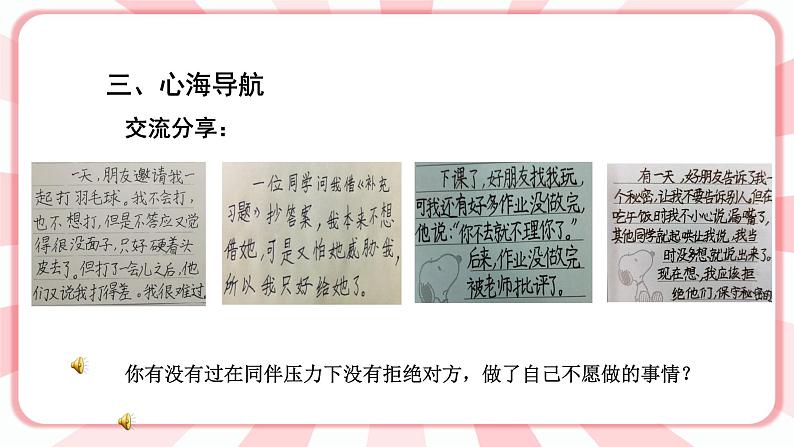 三、心海导航
交流分享：
一天，朋友邀请我一
起打羽毛球。我不会打，
也不想打，但是不答应又觉
得很没面子，只好硬着头
皮去了。但打了一会儿之后，他
们又说我打得差。我很难过。
一位同学问我借《补充
习题》抄答案，我本来不想
借她，可是又怕她威胁我，
所以我只好给她了。
下课了，好朋友找我玩，
可我还有好多作业没做完，
他说：“你不去就不理你了。”
后来，作业没做完
被老师批评了。
有一天，好朋友告诉了我一
个秘密，让我不要告诉别人，但在
吃午饭时我不小心说漏嘴了，
其他同学就起哄让我说，我当
时没多想就说出来了。
现在想，我应该拒
绝他们，保守秘密的
你有没有过在同伴压力下没有拒绝对方，做了自己不愿做的事情？